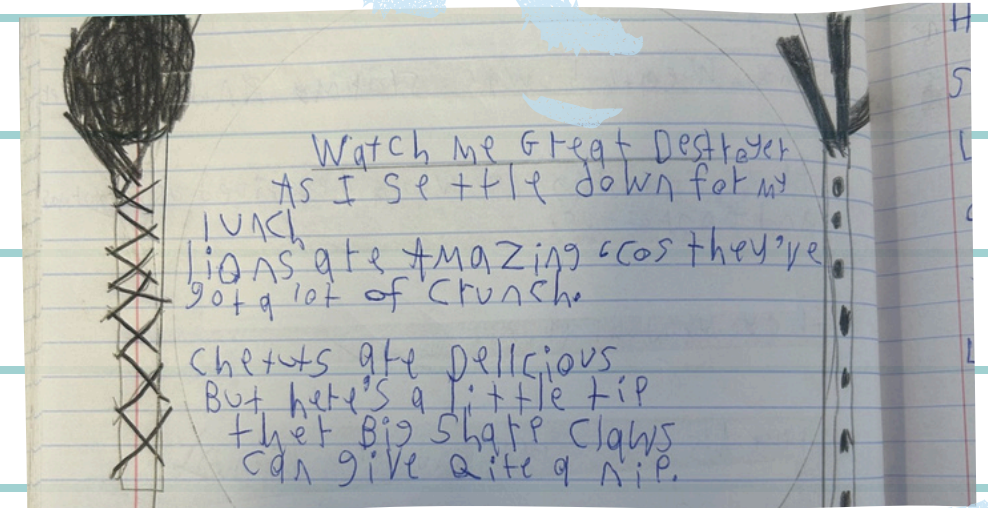 Watch Me Great Destroyer
As I settle down for my
lunch
lions are Amazing 'cos they've
got a lot of crunch.
Chetuts are Delicious
But here's a little tip
ther Big Sharp Claws
can give Qite a nip.
H
S
L
L